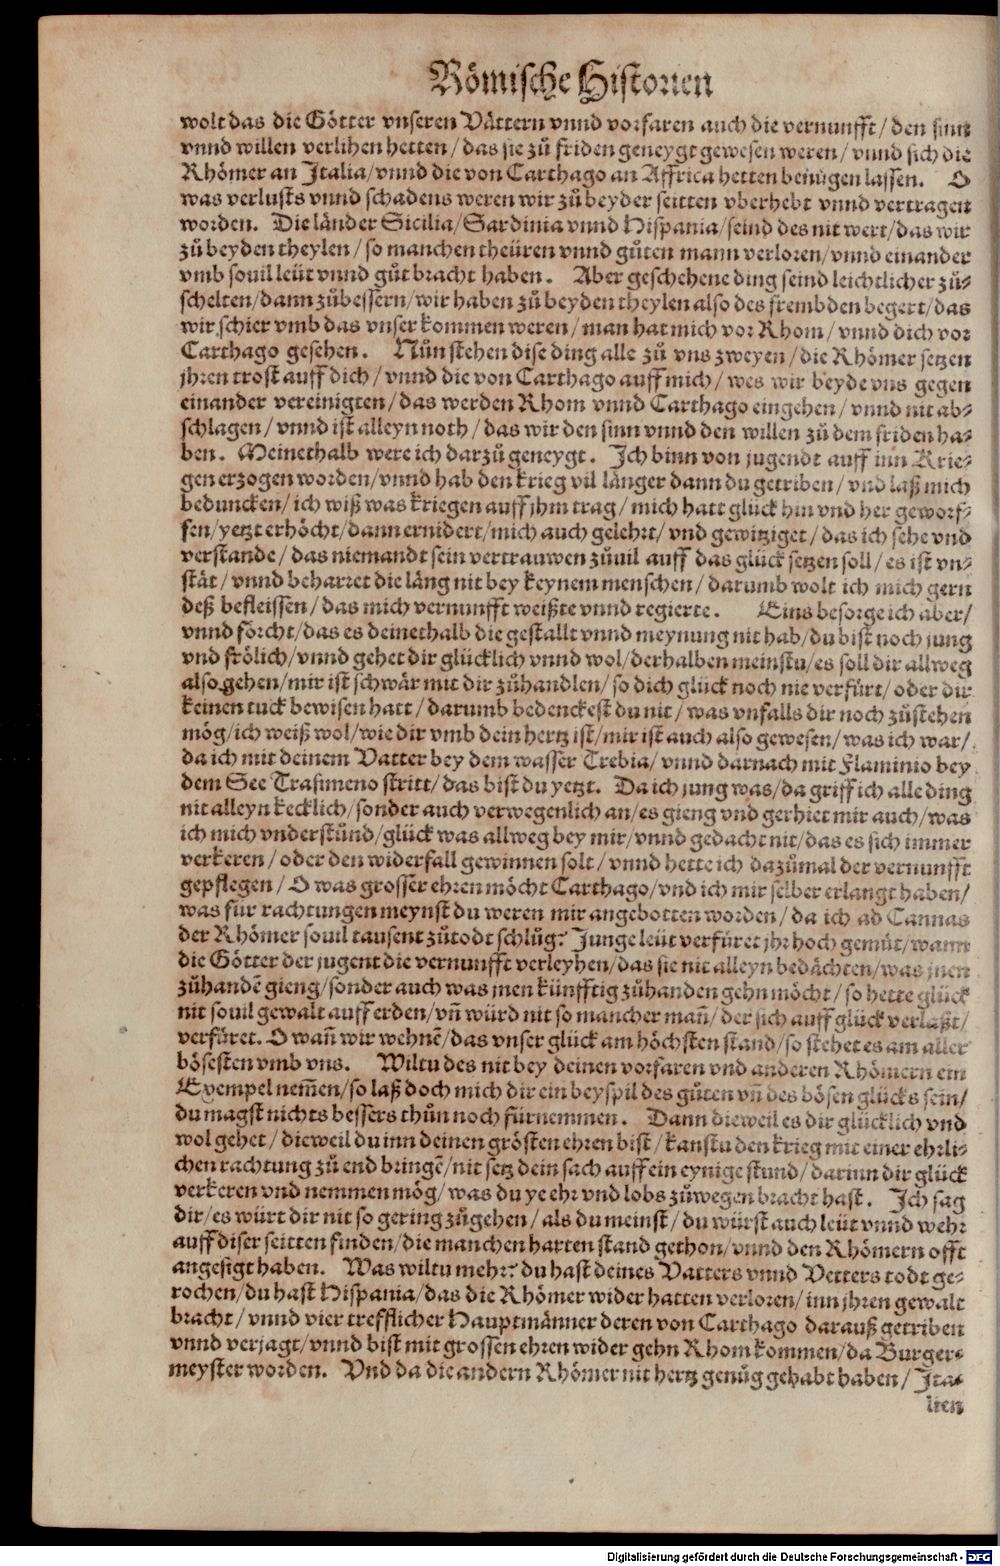 Römische Historien
wolt das die Götter vnseren Vättern vnnd vorfaren auch die vernunfft/ den sinn
vnnd willen verlihen hetten/ das sie zů friden geneygt gewesen weren/ vnnd sich die
Rhömer an Italia/ vnnd die von Carthago an Affrica hetten benůgen lassen. O
was verlusts vnnd schadens weren wir zů beyder seitten vberhebt vnnd vertragen
worden. Die länder Sicilia/ Sardinia vnnd Hispania/ seind des nit wert/ das wir
zů beyden theylen/ so manchen theüren vnnd gůten mann verloren/ vnnd einander
vmb souil leüt vnnd gůt bracht haben. Aber geschehene ding seind leichtlicher zů-
schelten/ dann zůbessern/ wir haben zů beyden theylen also des frembden begert/ das
wir schier vmb das vnser kommen weren/ man hat mich vor Rhom/ vnnd dich vor
Carthago gesehen. Nůn stehen dise ding alle zů vns zweyen/ die Rhömer setzen
jhren trost auff dich/ vnnd die von Carthago auff mich/ wes wir beyde vns gegen
einander vereinigten/ das werden Rhom vnnd Carthago eingehen/ vnnd nit ab-
schlagen/ vnnd ist alleyn noth/ das wir den sinn vnnd den willen zů dem friden ha-
ben. Meinethalb were ich darzů geneygt. Ich binn von jugendt auff inn Krie-
gen erzogen worden/ vnnd hab den krieg vil länger dann du getriben/ vnd laß mich
beduncken/ ich wiß was kriegen auff jhm trag/ mich hatt glück hin vnd her geworf-
fen/ yetzt erhöcht/ dann ernidert/ mich auch gelehrt/ vnd gewitziget/ das ich sehe vnd
verstande/ das niemandt sein vertrauwen zůuil auff das glück setzen soll/ es ist vn-
stät/ vnnd beharret die läng nit bey keynem menschen/ darumb wolt ich mich gern
deß befleissen/ das mich vernunfft weißte vnnd regierte. Eins besorge ich aber/
vnnd förcht/ das es deinethalb die gestallt vnnd meynung nit hab/ du bist noch jung
vnd frölich/ vnnd gehet dir glücklich vnnd wol/ derhalben meinstu/ es soll dir allweg
also gehen/ mir ist schwär mit dir zůhandlen/ so dich glück noch nie verfürt/ oder dir
keinen tuck bewisen hatt/ darumb bedenckest du nit/ was vnfalls dir noch zůstehen
mög/ ich weiß wol/ wie dir vmb dein hertz ist/ mir ist auch also gewesen/ was ich war/
da ich mit deinem Vatter bey dem wasser Trebia/ vnnd darnach mit Flaminio bey
dem See Trasimeno stritt/ das bist du yetzt. Da ich jung was/ da griff ich alle ding
nit alleyn kecklich/ sonder auch verwegenlich an/ es gieng vnd gerhiet mir auch/ was
ich mich vnderstůnd/ glück was allweg bey mir/ vnnd gedacht nit/ das es sich immer
verkeren/ oder den widerfall gewinnen solt/ vnnd hette ich dazůmal der vernunfft
gepflegen/ O was grosser ehren möcht Carthago/ vnd ich mir selber erlangt haben/
was für rachtungen meynst du weren mir angebotten worden/ da ich ad Cannas
der Rhömer souil tausent zůtodt schlůg? Junge leüt verfüret jhr hoch gemůt/ wann
die Götter der jugent die vernunfft verleyhen/ das sie nit alleyn bedächten/ was jnen
zůhandē gieng/ sonder auch was jnen künfftig zůhanden gehn möcht/ so hette glück
nit souil gewalt auff erden/ vn̄ würd nit so mancher man̄/ der sich auff glück verlaßt/
verfüret. O wan̄ wir wehnē/ das vnser glück am höchsten stand/ so stehet es am aller
bösesten vmb vns. Wiltu des nit bey deinen vorfaren vnd anderen Rhömern ein
Exempel nem̄en/ so laß doch mich dir ein beyspil des gůten vn̄ des bösen glücks sein/
du magst nichts bessers thůn noch fürnemmen. Dann dieweil es dir glücklich vnd
wol gehet/ dieweil du inn deinen grösten ehren bist/ kanstu den krieg mit einer ehrli-
chen rachtung zů end bringē/ nit setz dein sach auff ein eynige stund/ darinn dir glück
verkeren vnd nemmen mög/ was du ye ehr vnd lobs zůwegen bracht hast. Ich sag
dir/ es würt dir nit so gering zůgehen/ als du meinst/ du würst auch leüt vnnd wehr
auff diser seitten finden/ die manchen harten stand gethon/ vnnd den Rhömern offt
angesigt haben. Was wiltu mehr? du hast deines Vatters vnnd Vetters todt ge-
rochen/ du hast Hispania/ das die Rhömer wider hatten verloren/ inn jhren gewalt
bracht/ vnnd vier trefflicher Hauptmänner deren von Carthago darauß getriben
vnnd verjagt/ vnnd bist mit grossen ehren wider gehn Rhom kommen/ da Burger-
meyster worden. Vnd da die andern Rhömer nit hertz genůg gehabt haben/ Ita-
lien
Digitalisierung gefördert durch die Deutsche Forschungsgemeinschaft - DFG